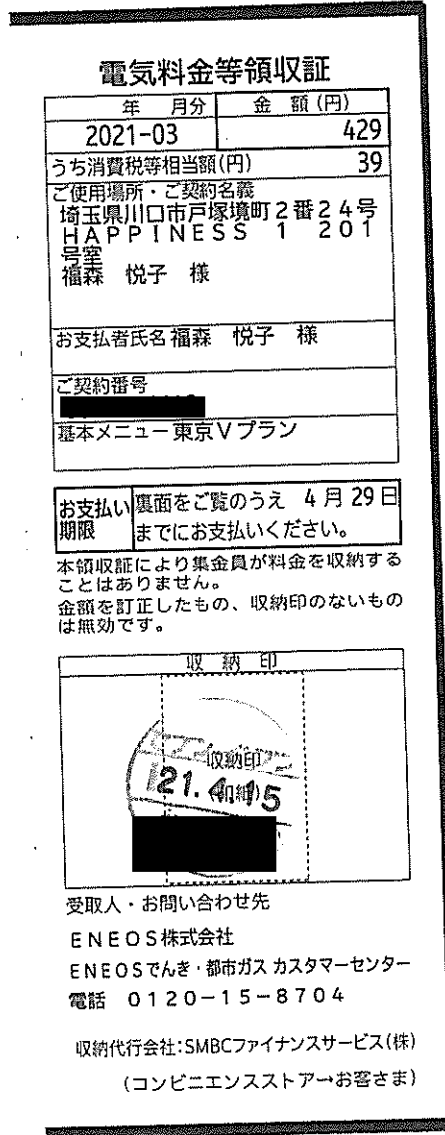 電気料金等領収証
年 月分 金 額(円)
2021-03 429
うち消費税等相当額(円) 39
ご使用場所・ご契約名義
埼玉県川口市戸塚境町2番24号
HAPPINESS 1 201
号室
福森 悦子 様
お支払者氏名 福森 悦子 様
ご契約番号
基本メニュー 東京Vプラン
お支払い期限 裏面をご覧のうえ 4月29日
までにお支払いください。
本領収証により集金員が料金を収納する
ことはありません。
金額を訂正したもの、収納印のないもの
は無効です。
収 納 印
収納印
21.4.15
受取人・お問い合わせ先
ENEOS株式会社
ENEOSでんき・都市ガス カスタマーセンター
電話 0120-15-8704
収納代行会社:SMBCファイナンスサービス(株)
(コンビニエンスストア→お客さま)